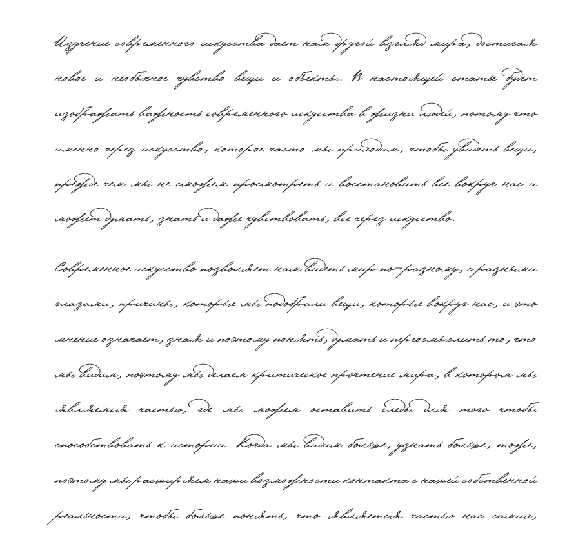 Изучение современного искусства дает нам другой взгляд мира, достигая
новое и необычное чувство вещи и объекты. В настоящей статье будут
изображать важность современного искусства в жизни людей, потому что
именно через искусство, которое часто мы приходим, чтобы увидеть вещи,
прежде чем мы не сможем просмотреть и восстановить все вокруг нас и
может думать, знать и даже чувствовать, все через искусство.
Современное искусство позволяет нам видеть мир по-разному, с разными
глазами, причины, которые мы подобрали вещи, которые вокруг нас, и это
мнение означает, зная и поэтому понять, думать и переосмыслить то, что
мы видим, поэтому мы делаем критическое прочтение мира, в котором мы
являемся частью, где мы можем оставить следы для того чтобы
способствовать к истории. Когда мы видим больше, узнать больше, тоже,
поэтому мы расширяем наши возможности контакта с нашей собственной
реальности, чтобы больше понять, что является частью нас самих,